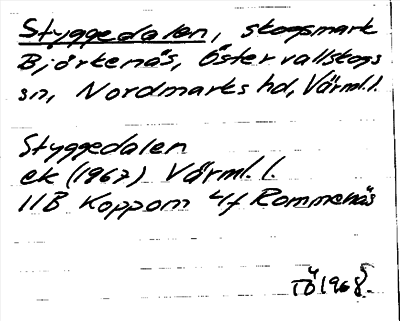 Styggedalen, skogsmark
Björkenäs, Östervallskogs
sn, Nordmarks hd, Värml. l.
Styggedalen
ek (1967) Värml. l.
11B Koppom 4f Rommenäs
1968.